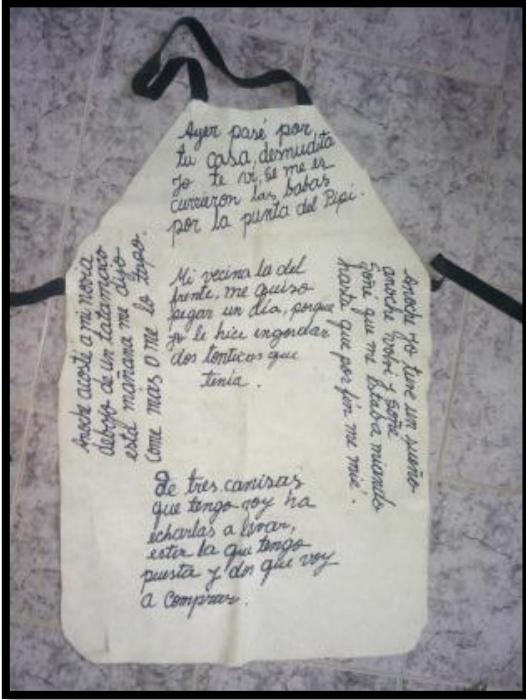 Ayer pasé por
tu casa, desnudita
yo te vi, se me es
currieron las babas
por la punta del Pipí.
Mi vecina la del
frente, me quiso
pegar un día, porque
yo le hice engordar
dos tonticos que
tenía.
Anoche acosté a mi novia
debajo de un tatamaco
esta mañana me dijo
come mais o me lo tapo.
Anoche yo tuve un sueño
anoche volví y soñé
soñé que me estaba miando
hasta que por fin me mié.
De tres camisas
que tengo voy ha
echarlas a lavar,
esta la que tengo
puesta y dos que voy
a comprar.